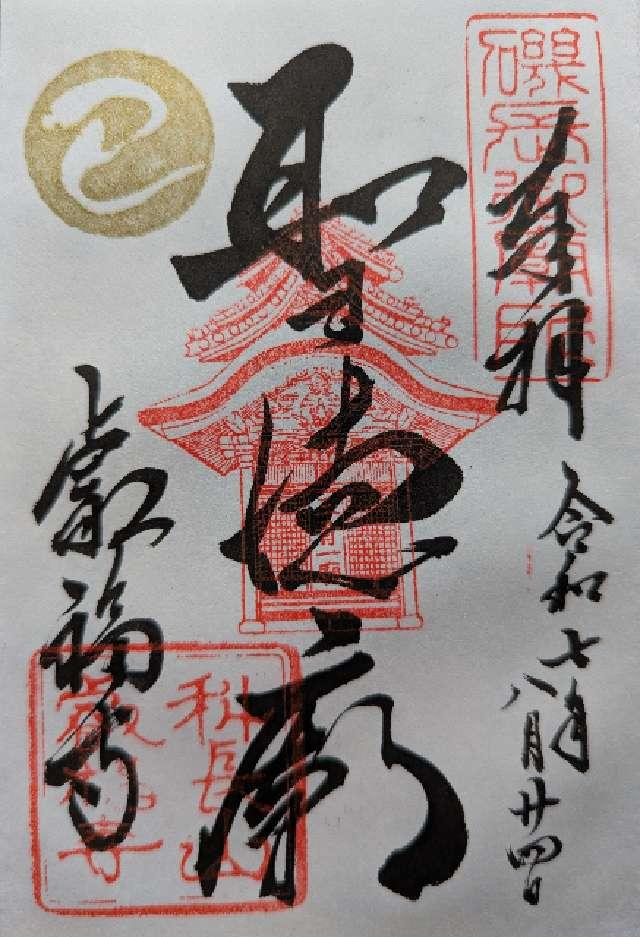 奉拝
令和七年
八月廿四日
磯長御廟
聖徳廟
叡福寺
科長山
叡福寺